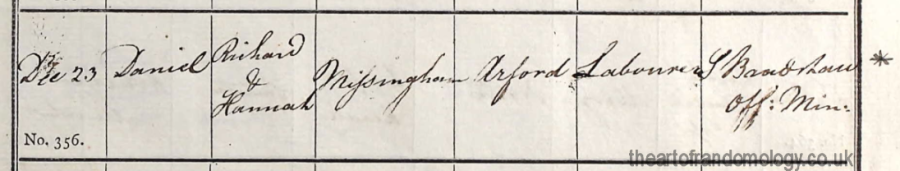 Dec 23 Daniel Richard & Hannah Missingham Arford Labourer S Bradshaw Off: Min: *
No. 356.
theartofrandomology.co.uk